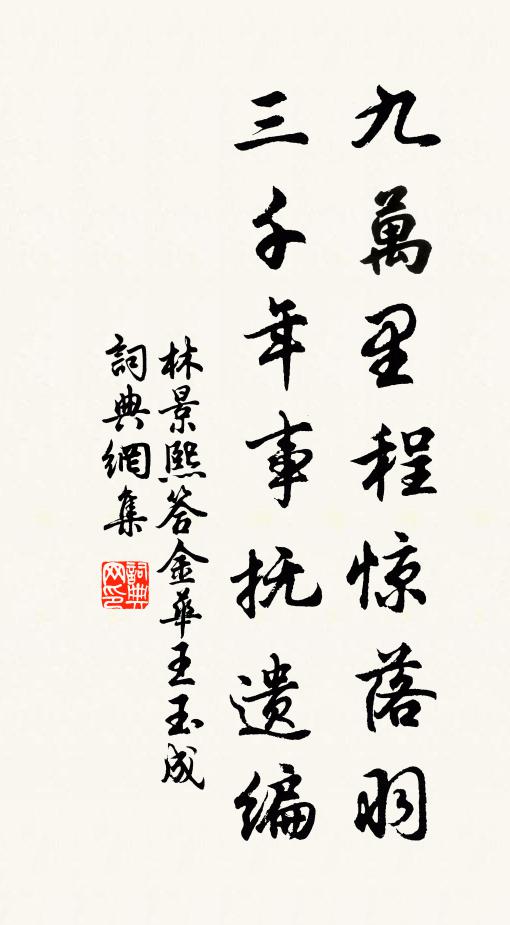 九萬里程惊落羽
三千年事抚遗编
林景熙答金華王玉成
詞典網集
詞典网印